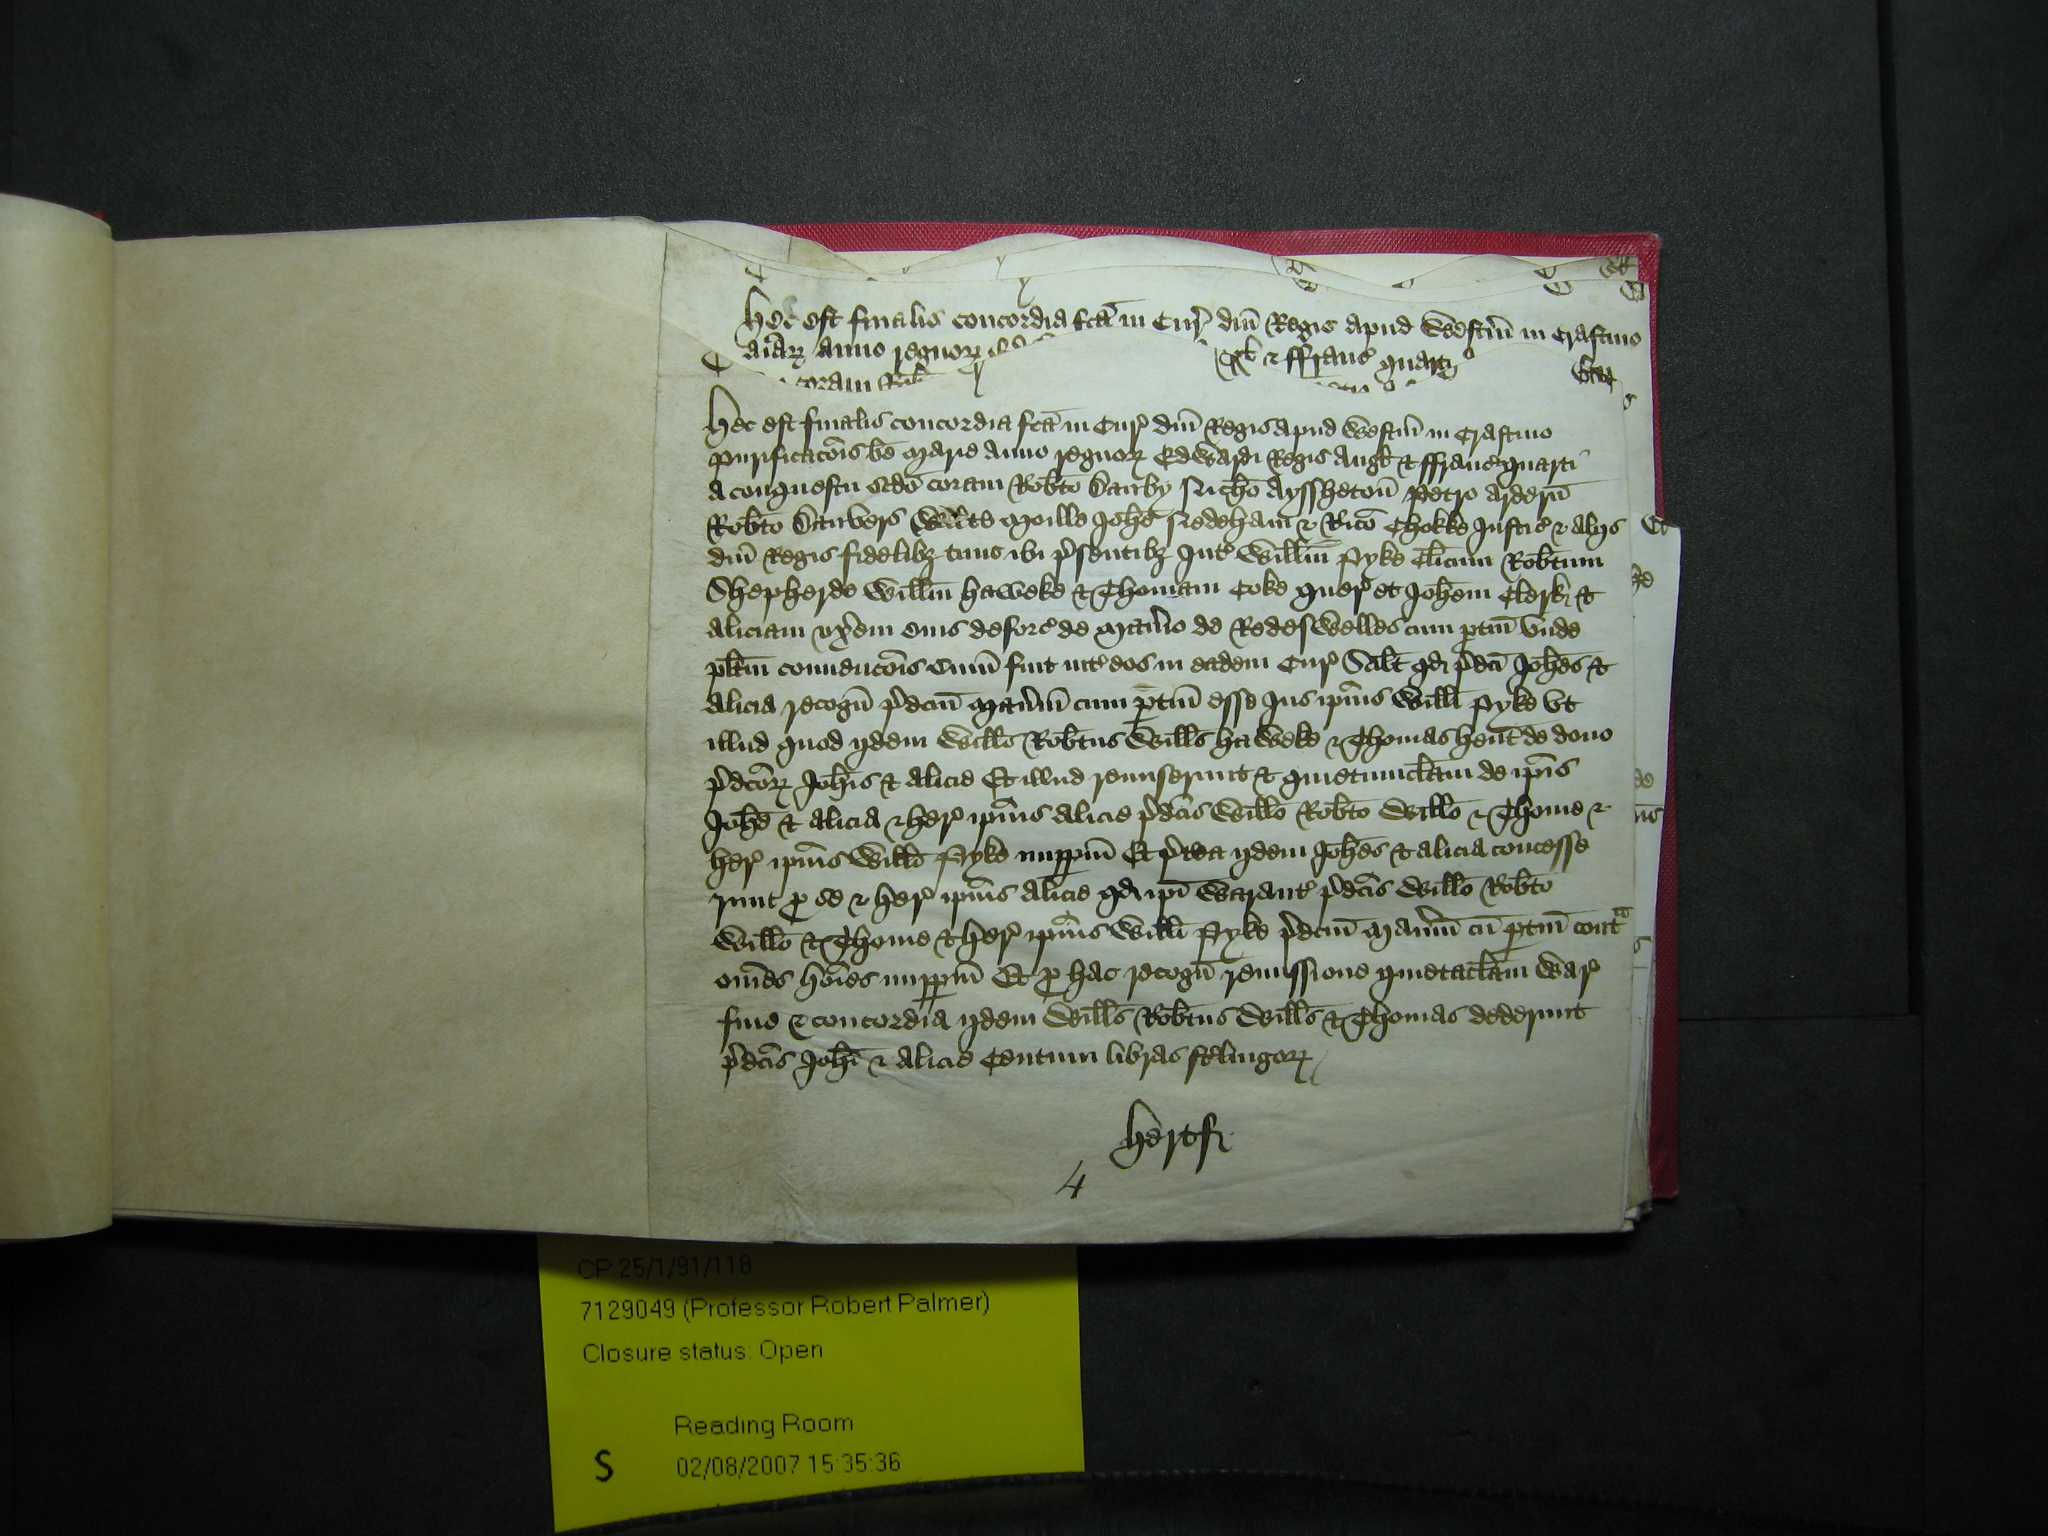 Hec est finalis concordia fcā in Cur' dn̄i Regis apud Westm̄ in Crastino
aiar̄ꝝ anno regnoꝝ
& ffranc' quarti
coram Rob̄
Hec est finalis concordia fcā in Cur' dn̄i Regis apud Westm̄ in Crastino
purificac̄ois bē Marie anno regnoꝝ Edwardi Regis Angł & ffranc' quarti
a conquestu scd̄o coram Rob̄to Danby Nich̄o Ayssheton̄ Petro Ardern̄
Rob̄to Danvers Walt̄o Moille Joh̄e Nedeham & Ric̄o Chokke Justic' & alijs
dn̄i Regis fidelibꝫ tunc ibi p'sentibꝫ Int' Willm̄ Pyke Cl̄icum Rob̄tum
Shepherde Willm̄ Haweke & Thomam Coke quer' et Joh̄em Clerk &
Aliciam ux̄em eius deforc' de Man̄io de Redeswelles cum ptin̄ unde
pl̄itm convenc̄ois sum̄ fuit int' eos in eadem Cur' Scilt qd p'dc̄i Joh̄es &
Alicia recogn̄ p'dcm̄ Man̄ium cum ptin̄ esse Jus ip̄ius Willi Pyke ut
illud quod ijdem Wills Rob̄tus Wills Haweke & Thomas hent de dono
p'dc̄oꝝ Joh̄is & Alicie Et illud remiserunt & quietumclam̄ de ip̄is
Joh̄e & Alicia & her' ip̄ius Alicie p'dc̄is Willo Rob̄to Willo & Thome &
her' ip̄ius Willi Pyke imppm̄ Et p'tea ijdem Joh̄es & Alicia concesse
runt p se & her' ip̄ius Alicie qd ip̄i Warant' p'dc̄is Willo Rob̄to
Willo & Thome & her' ip̄ius Willi Pyke p'dcm̄ Man̄ium cū ptin̄ contᵃ
om̄es hōies imppm̄ Et p hac recogn̄ remissione quietaclam̄ War'
fine & concordia ijdem Wills Rob̄tus Wills & Thomas dederunt
p'dc̄is Joh̄i & Alicie Centum libras st'lingoꝝ
Hertf
4
CP 25/1/91/118
7129049 (Professor Robert Palmer)
Closure status: Open
Reading Room
S 02/08/2007 15:35:36